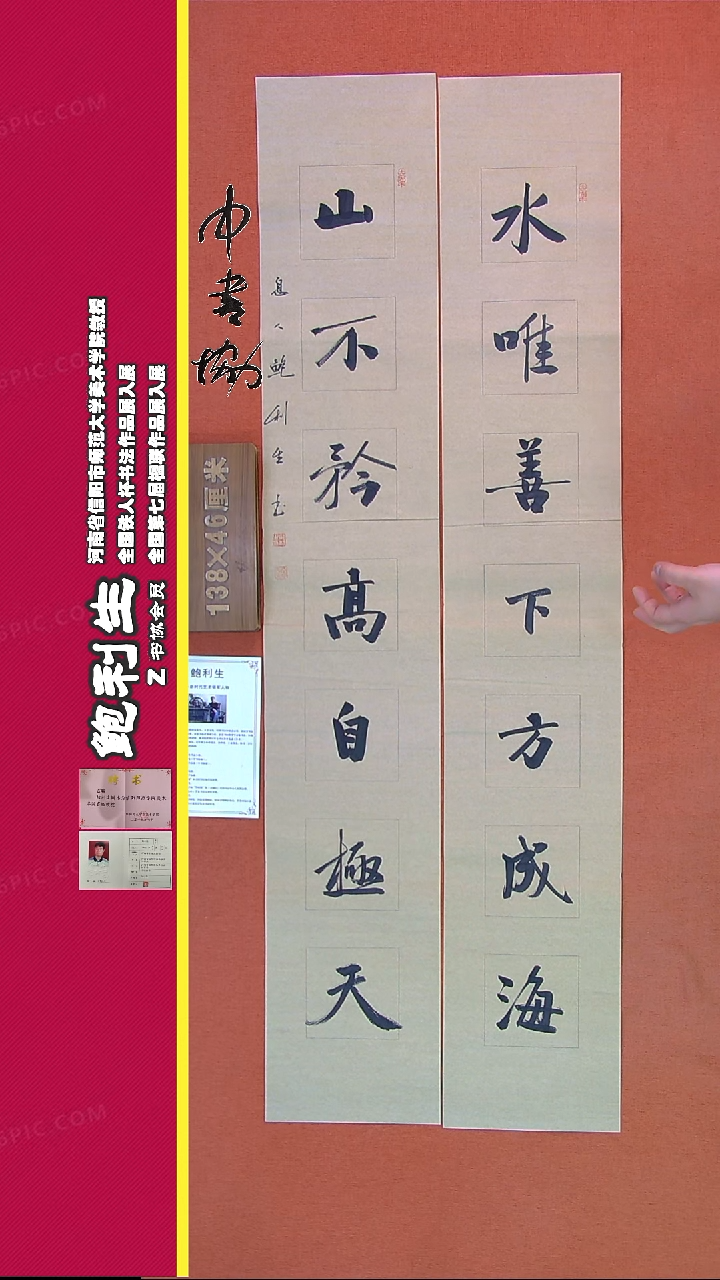 水唯善下方成海
山不矜高自極天
息人鲍利生书
中书协
138×46厘米
鲍利生
Z书协会员
河南省信阳市师范大学美术学院教授
全国铁人杯书法作品展入展
全国第七届楹联作品展入展
鲍利生
聘书